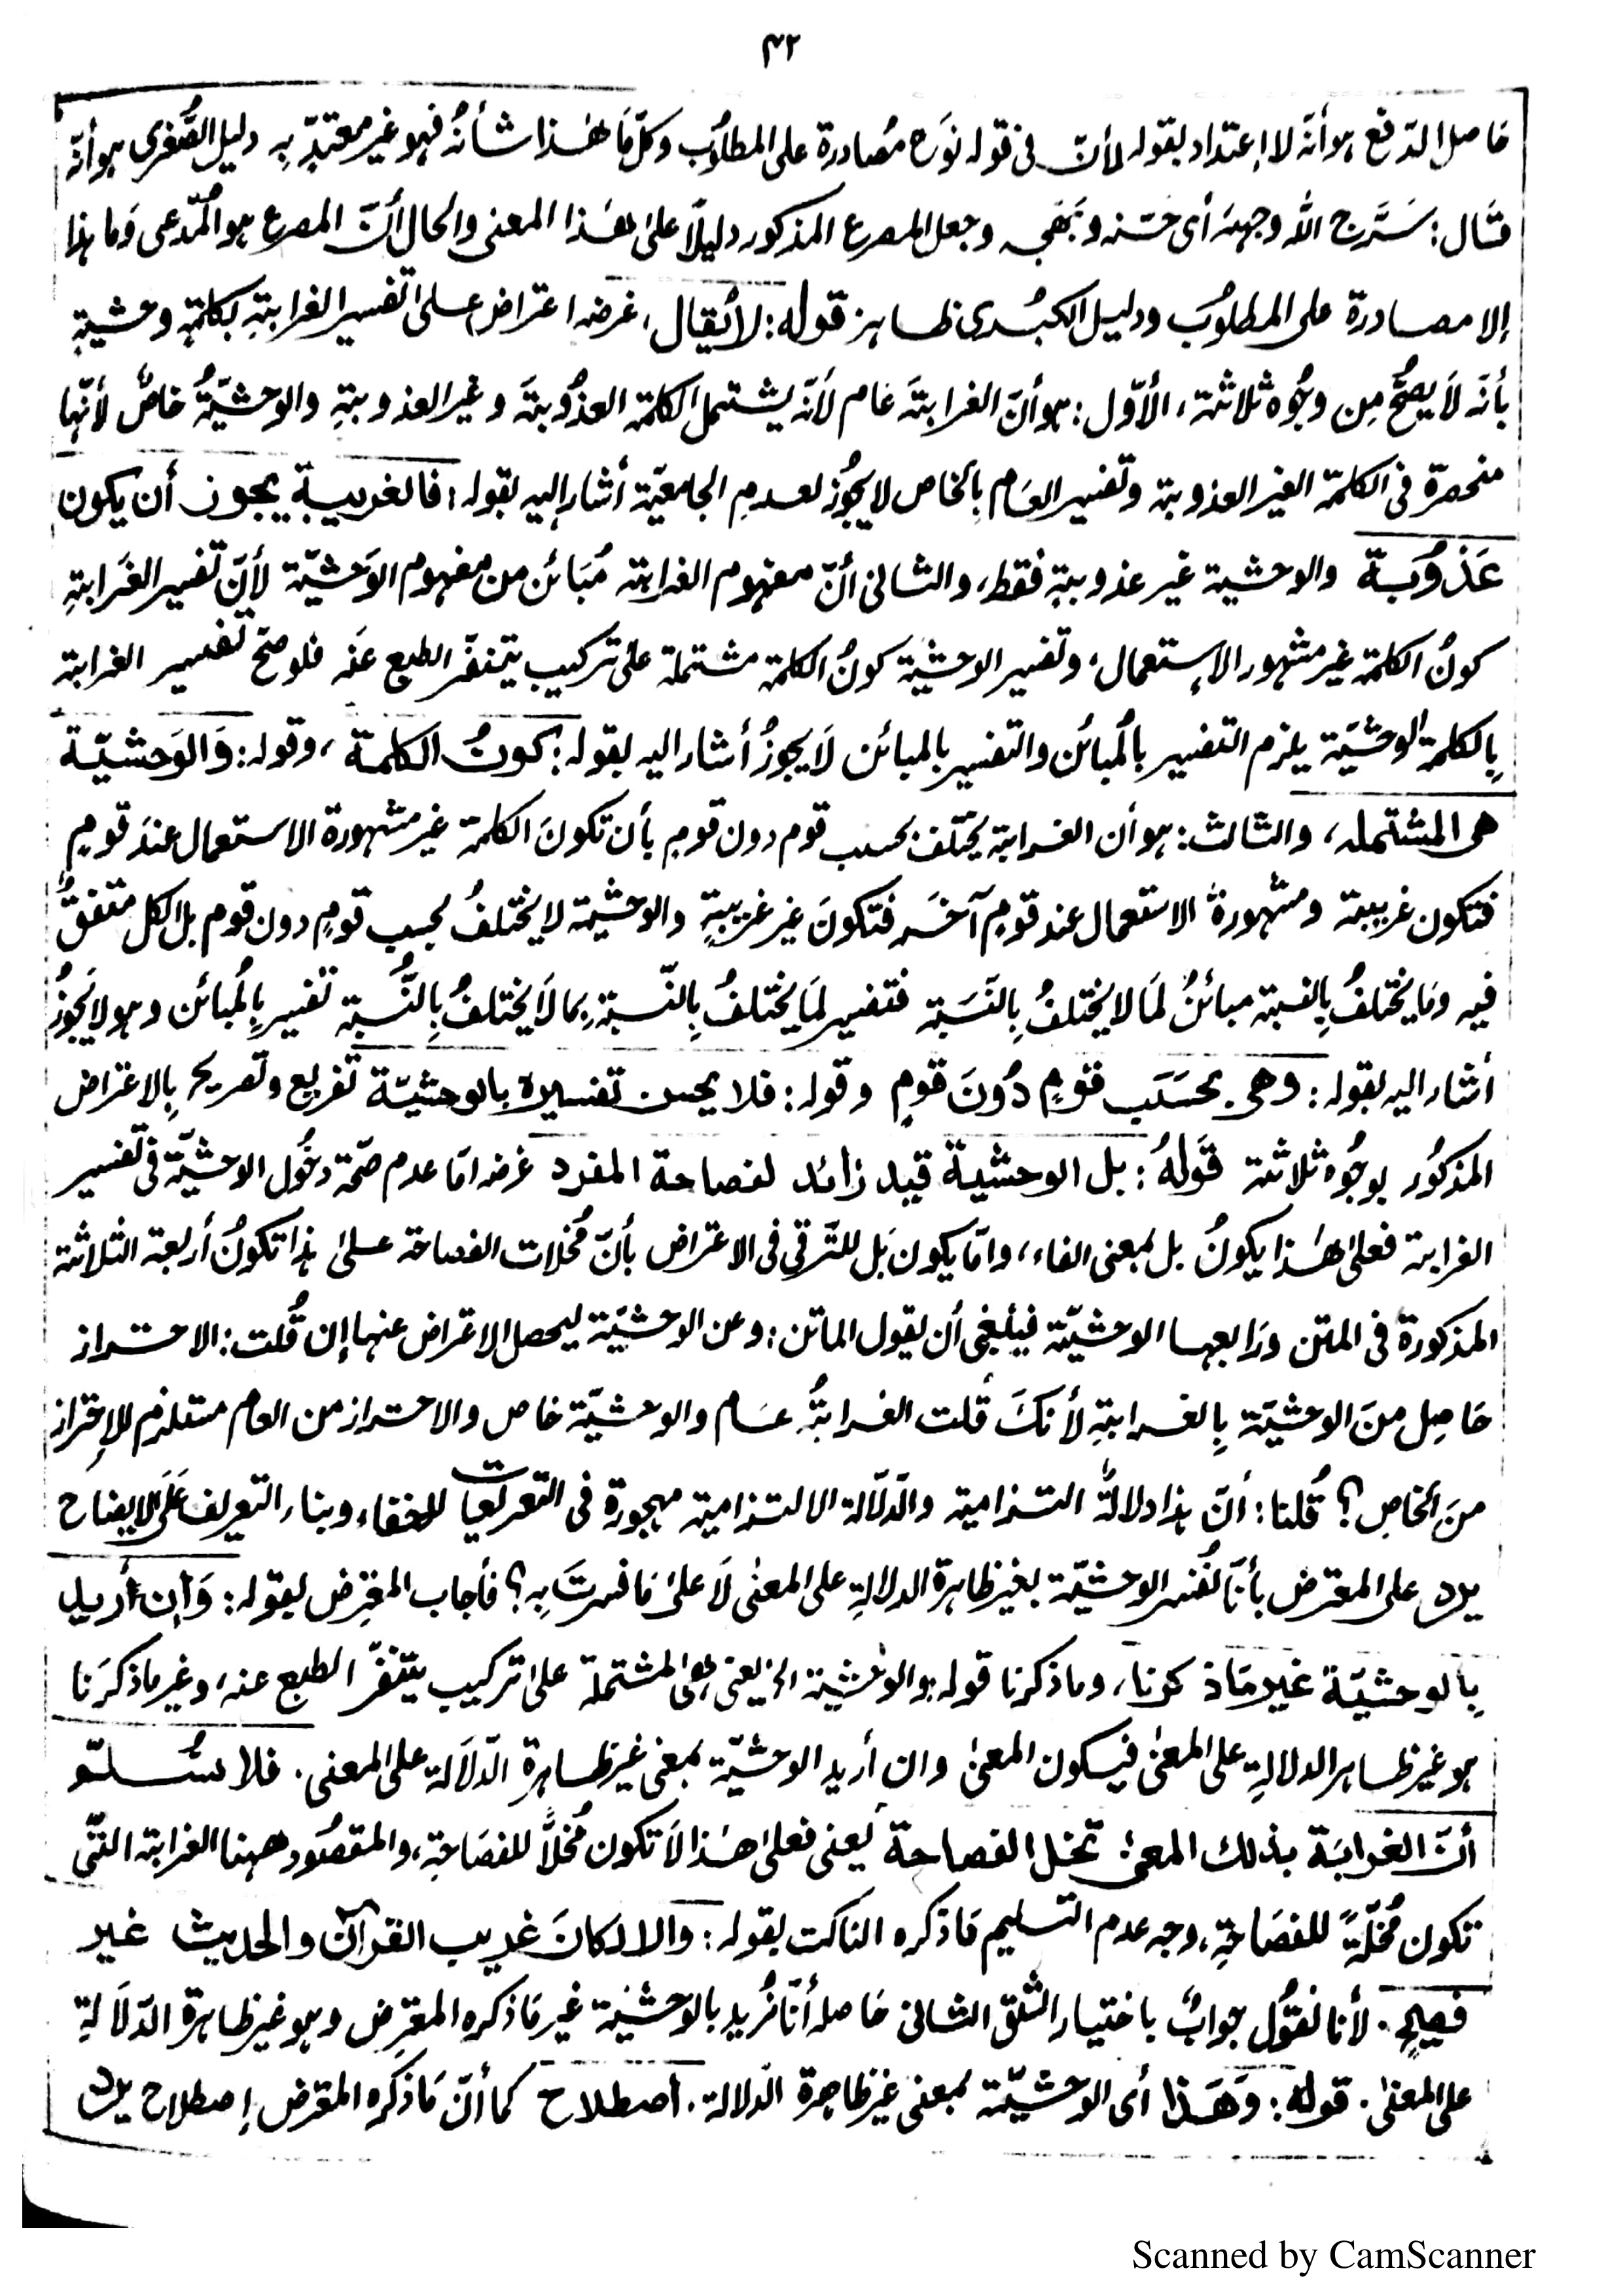 ۴۲
حاصل الدّفع ہو أنّہ لا إعتداد بقولہ لأنّ فی قولہ نوَرہ مُصادرة علی المطلوُب وکلّ مَا ھٰذا شأنہُ فہو غیر معتدٍّ بِہٖ دلیل الصُّغری ہو أنّہ
قال: سَرَّج اللہ وجہہٗ أی حسَّنہ وبَھَّجہ وجعل المصرع المذکور دلیلًا علیٰ ھٰذا المعنی والحال أنّ المصرع ہو المُدّعی وَما ہٰذا
إلا مصادرة علی المطلوُب ودلیل الکبُریٰ ظاہر قولہ: لایُقال، غرضہ اعتراض علیٰ تفسیر الغرابتِہٖ بکلمتِہٖ وحشیةٍ
بأنّہ لَا یصحُّ مِن وجُوہ ثلاثتہ، الأوّل: ہو أنّ الغرابتَہ عام لأنّہ یشتمل الکلمتہ العذُوبتَہ وغیر العذوبتِہٖ والوحشیّةُ خاصٌ لأنّہا
منحصرة فی الکلمتہ الغیر العذوبتہ وتفسیر العَام بالخاص لا یجُوز لعدمِ الجامعیّة أشار إلیہ بقولہ: فالغریبة یجوز أن یکون
عَذْوُبة والوحشیة غیر عذوبتٍہ فقط، والثانی أنّ مفہوم الغرابتہ مُبَائن من مفہوم الوَحشیّة لأنّ تفسیر الغَرابتِہٖ
کونُ الکلمتہ غیر مشہور الإستعمال، وتفسیر الوحشیّة کونُ الکلمتہ مشتملة علی ترکیب یتنفّر الطبع عنہ فلو صحّ تفسیر الغرابتہ
بِالکلمتہ الوحشیّة یلزم التفسیر بالمُبائن والتفسیر بالمبائن لَا یجوزُ أشار الیہ بقولہ: کونُ الکلمة، وقولہ: وَالوَحشیّة
ھی المشتملہ، والثالث: ہو أن الغرابتہ یختلف بحسب قوم دون قومٍ بأن تکونَ الکلمتہ غیر مشہورة الاستعمال عندَ قومٍ
فتکون غریبتہ ومشہورةُ الاستعمال عند قومٍ آخَر فتکونَ غیر غریبةٍ والوحشیة لا یختلفُ بحسب قومٍ دون قوم بل الکل متفقٌ
فیہ ومَا یختلفُ بِالنسبتہ مبائنٌ لمَا لا یختلفُ بِالنّسَبتہ فتفسیر لمَا یختلفُ بِالنّسبتہ بما لَا یختلفُ بِالنّسبتہ تفسیر بِالمُبائن وہو لایَجُوزُ
أشار الیہ بقولہ: وھی بحسَب قومٍ دُونَ قومٍ وقولہ: فلا یحسن تفسیرہ بالوحشیّة تفریع وتصریح بِالاعتراض
المذکُور بوجُوہ ثلاثتہ قولہُ: بل الوحشیة قید زائد لفصاحة المفرد غرضہ امّا عدم صحّة دخُول الوحشیّة فی تفسیر
الغرابتہ فعلیٰ ھٰذا یکونُ بل بمعنی الفاء، وامّا یکون بَل للتّرقی فی الاعتراض بأنّ مُخلات الفصاحتہ علیٰ ہذا تکونُ أربعة الثلاثتہ
المذکورة فی المتن ورَابعہا الوحشیّة فینبغی أن یقول الماتن: وعن الوحشیّة لیحصل الاعتراض عنہا إن قُلت: الاحتراز
حَاصِل منَ الوحشیّة بِالغرابتِہٖ لأنکَ قُلت الغرابتُہ عام والوحشیّة خاص والاحتراز من العام مستلزم للإحتراز
منَ الخاصِ؟ قُلنا: أنّ ہذا دلالةٌ التزامیة والدّلالة الالتزامیة مہجورة فی التعریفات للخفاء وبناء التعریف عَلَی الإیضاح
یرد علی المعترض بأنّا نُفسّر الوحشیّة بغیر ظاہرة الدلالةِ علی المعنٰی لَا علیٰ مَا فسرتَ بِہٖ؟ فأجاب المعترِض بقولہ: وَإن أرید
بِالوحشیّة غیر مَا ذکرنا، وما ذکرنا قولہ: والوَحشیة الخ یعنی ھی المشتملة علیٰ ترکیب یتنفّر الطبع عنہ، وغیر ما ذکرَنا
ہو غیر ظاہر الدلالةِ علی المعنٰی فیکون المعنیٰ وان أرید الوحشیّة بمعنی غیر ظاہرة الدّلَالة علی المعنی. فلا نسُلّم
أنّ الغرابَة بذلك المعنیٰ تخل الفصاحة یعنی فعلیٰ ھٰذا لَا تکون مُخلًّا للفصَاحتِہٖ، والمقصُود ھہنا الغرابتہ التّی
تکون مُخلّةً للفصَاحتِہٖ، وجہ عدم التسلیم مَا ذکرہ الناکت بقولہ: والا لکانَ غریب القرآن والحدیث غیر
فصیحٍ. لأنا نقوُل جوابٌ باختیار الشق الثانی حَاصلہ أنّا نُرید بالوَحشیّة غیر مَا ذکرہ المعترِض وہو غیر ظاہرة الدّلَالةِ
علی المعنیٰ. قولہ: وَھَذا أی الوحشیّة بمعنی غیر ظاھرة الدّلالة. اصطلاح کما أنّ مَا ذکرہ المعترض إصطلاح یرد
Scanned by CamScanner